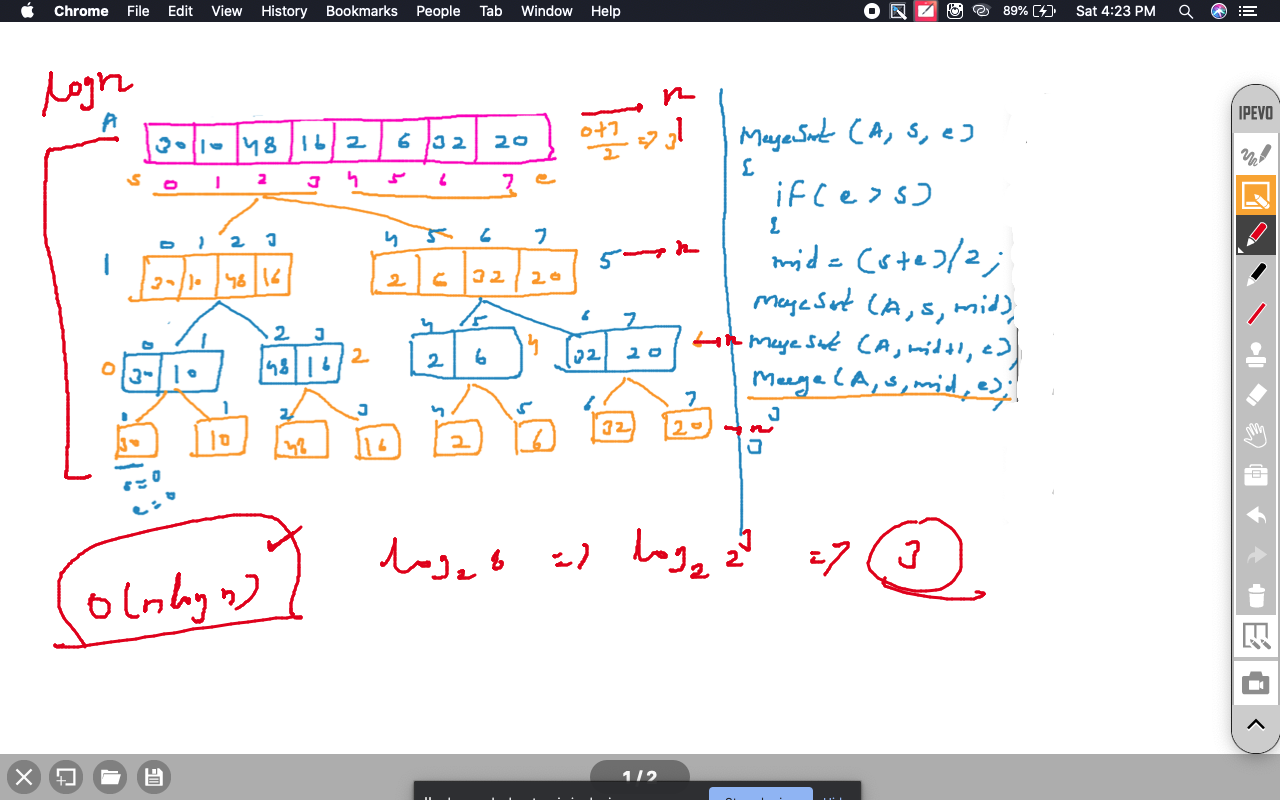 Chrome File Edit View History Bookmarks People Tab Window Help 89% Sat 4:23 PM
IPEVO
logn
A
30 10 48 16 2 6 32 20
n
0+7/2 => 3
s 0 1 2 3 4 5 6 7 e
0 1 2 3 4 5 6 7
1 30 10 48 16 2 6 32 20 5 → n
0 1 2 3 4 5 6 7
0 30 10 48 16 2 2 6 4 32 20 ← n
0 1 2 3 4 5 6 7
30 10 48 16 2 6 32 20 → n
s=0
e=0
MergeSort (A, s, e)
{
if(e > s)
{
mid = (s+e)/2;
MergeSort (A, s, mid)
MergeSort (A, mid+1, e)
Merge(A, s, mid, e);
}
}
O(nlogn)
log₂ 8 => log₂ 2³ => 3
1/2